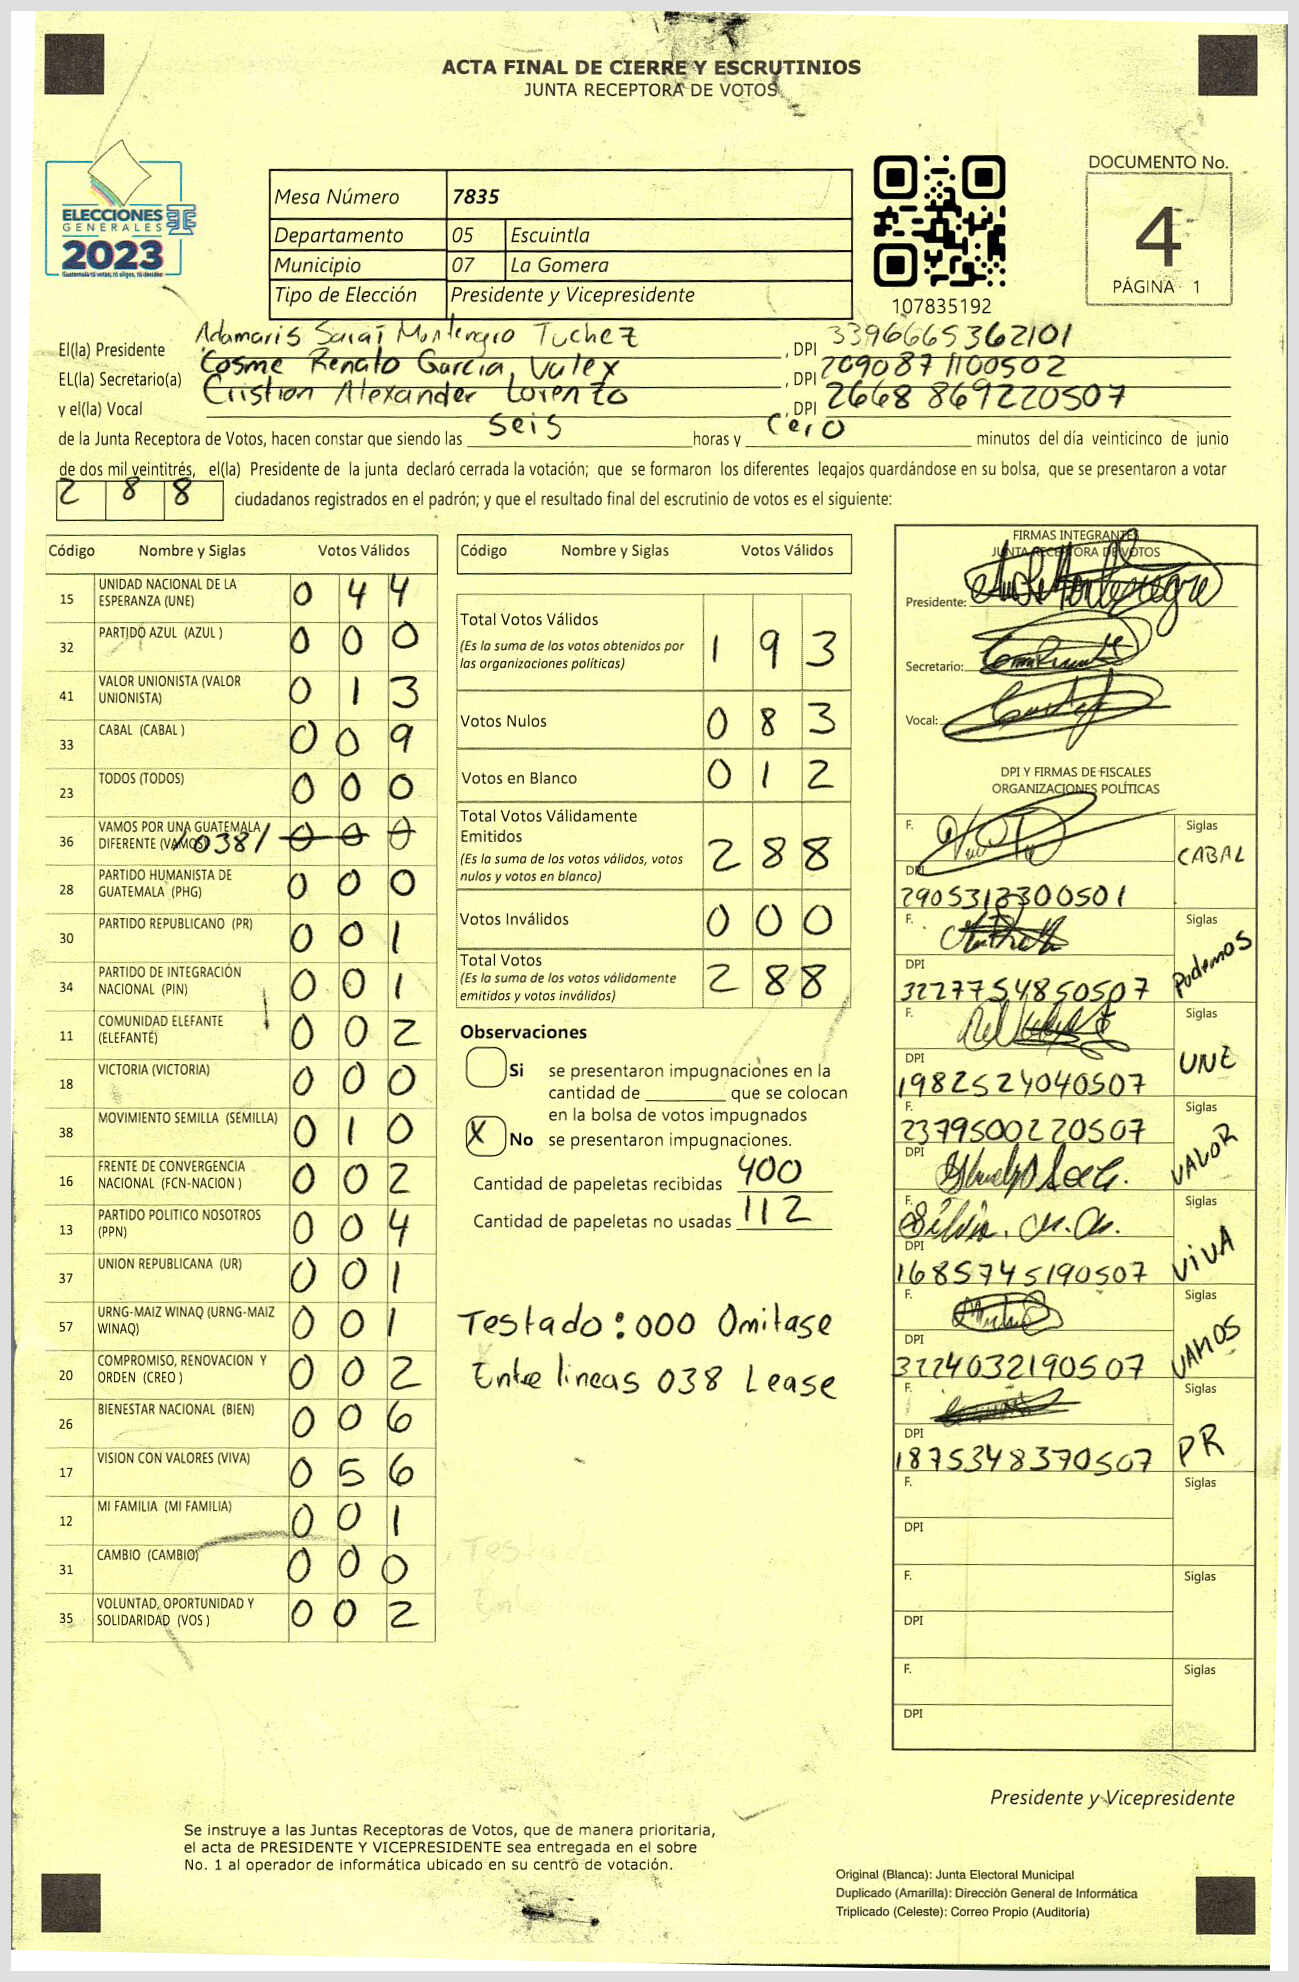 ACTA FINAL DE CIERRE Y ESCRUTINIOS
JUNTA RECEPTORA DE VOTOS
ELECCIONES
GENERALES
2023
Mesa Número 7835
Departamento 05 Escuintla
Municipio 07 La Gomera
Tipo de Elección Presidente y Vicepresidente
107835192
DOCUMENTO No.
4
PÁGINA 1
El(la) Presidente Adamaris Saraí Montenegro Tuchez , DPI 3396665362101
EL(la) Secretario(a) Cosme Renato Garcia Valex , DPI 2090871100502
y el(la) Vocal Cristian Alexander Lorenzo , DPI 2668869220507
de la Junta Receptora de Votos, hacen constar que siendo las seis horas y cero minutos del día veinticinco de junio
de dos mil veintitrés, el(la) Presidente de la junta declaró cerrada la votación; que se formaron los diferentes legajos guardándose en su bolsa, que se presentaron a votar
288 ciudadanos registrados en el padrón; y que el resultado final del escrutinio de votos es el siguiente:
Código Nombre y Siglas Votos Válidos
15 UNIDAD NACIONAL DE LA ESPERANZA (UNE) 0 4 4
32 PARTIDO AZUL (AZUL ) 0 0 0
41 VALOR UNIONISTA (VALOR UNIONISTA) 0 1 3
33 CABAL (CABAL ) 0 0 9
23 TODOS (TODOS) 0 0 0
36 VAMOS POR UNA GUATEMALA DIFERENTE (VAMOS) /038/ 0 0 0
28 PARTIDO HUMANISTA DE GUATEMALA (PHG) 0 0 0
30 PARTIDO REPUBLICANO (PR) 0 0 1
34 PARTIDO DE INTEGRACIÓN NACIONAL (PIN) 0 0 1
11 COMUNIDAD ELEFANTE (ELEFANTE) 0 0 2
18 VICTORIA (VICTORIA) 0 0 0
38 MOVIMIENTO SEMILLA (SEMILLA) 0 1 0
16 FRENTE DE CONVERGENCIA NACIONAL (FCN-NACION ) 0 0 2
13 PARTIDO POLITICO NOSOTROS (PPN) 0 0 4
37 UNION REPUBLICANA (UR) 0 0 1
57 URNG-MAIZ WINAQ (URNG-MAIZ WINAQ) 0 0 1
20 COMPROMISO, RENOVACION Y ORDEN (CREO ) 0 0 2
26 BIENESTAR NACIONAL (BIEN) 0 0 6
17 VISION CON VALORES (VIVA) 0 5 6
12 MI FAMILIA (MI FAMILIA) 0 0 1
31 CAMBIO (CAMBIO) 0 0 0
35 VOLUNTAD, OPORTUNIDAD Y SOLIDARIDAD (VOS ) 0 0 2
Código Nombre y Siglas Votos Válidos
Total Votos Válidos 1 9 3
(Es la suma de los votos obtenidos por
las organizaciones políticas)
Votos Nulos 0 8 3
Votos en Blanco 0 1 2
Total Votos Válidamente
Emitidos 2 8 8
(Es la suma de los votos válidos, votos
nulos y votos en blanco)
Votos Inválidos 0 0 0
Total Votos 2 8 8
(Es la suma de los votos válidamente
emitidos y votos inválidos)
Observaciones
Si se presentaron impugnaciones en la
cantidad de ________ que se colocan
en la bolsa de votos impugnados
X No se presentaron impugnaciones.
Cantidad de papeletas recibidas 400
Cantidad de papeletas no usadas 112
Testado: 000 Omitase
Entre lineas 038 Lease
FIRMAS INTEGRANTES
JUNTA RECEPTORA DE VOTOS
Presidente:
Secretario:
Vocal:
DPI Y FIRMAS DE FISCALES
ORGANIZACIONES POLÍTICAS
F. Siglas
CABAL
DPI
2905313300501
F. Siglas
Podemos
DPI
3227754850507
F. Siglas
UNE
DPI
1982524040507
F. Siglas
2379500220507
VALOR
DPI
F. Siglas
VIVA
DPI
1685745190507
F. Siglas
VAMOS
DPI
3224032190507
F. Siglas
PR
DPI
1875348370507
F. Siglas
DPI
F. Siglas
DPI
F. Siglas
DPI
Presidente y Vicepresidente
Se instruye a las Juntas Receptoras de Votos, que de manera prioritaria,
el acta de PRESIDENTE Y VICEPRESIDENTE sea entregada en el sobre
No. 1 al operador de informática ubicado en su centro de votación.
Original (Blanca): Junta Electoral Municipal
Duplicado (Amarilla): Dirección General de Informática
Triplicado (Celeste): Correo Propio (Auditoría)